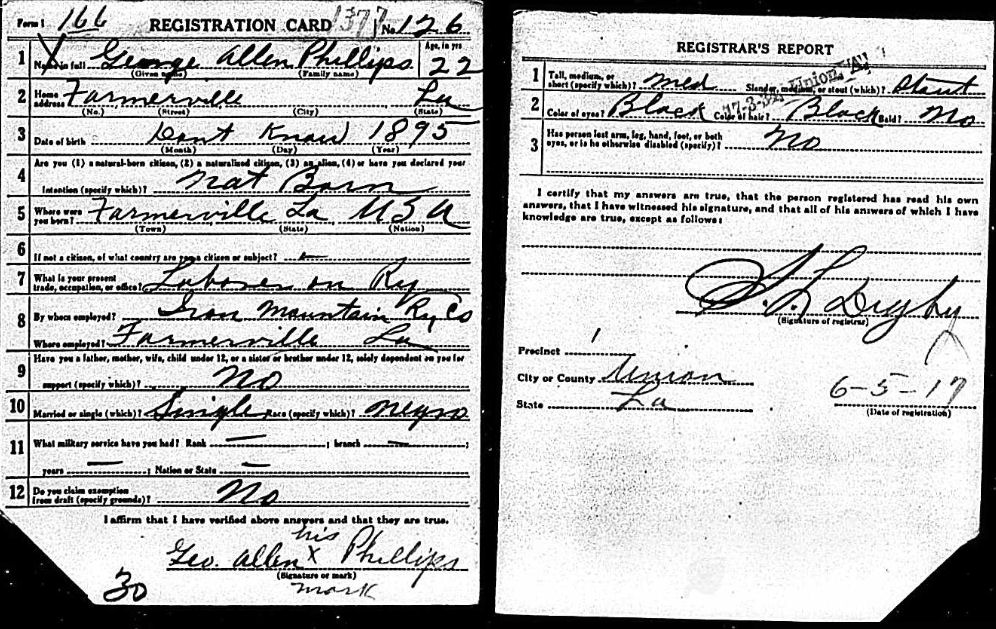 Form 1 166 REGISTRATION CARD 1377 No. 126
1 X Name in full George Allen Phillips Age, in yrs 22
(Given name) (Family name)
2 Home address Farmerville La
(No.) (Street) (City) (State)
3 Date of birth Dont Know 1895
(Month) (Day) (Year)
4 Are you (1) a natural-born citizen, (2) a naturalized citizen, (3) an alien, (4) or have you declared your
intention (specify which)? Nat Born
5 Where were you born? Farmerville La USA
(Town) (State) (Nation)
6 If not a citizen, of what country are you a citizen or subject? —
7 What is your present trade, occupation, or office? Laborer on Ry
8 By whom employed? Iron Mountain Ry Co
Where employed? Farmerville La
9 Have you a father, mother, wife, child under 12, or a sister or brother under 12, solely dependent on you for
support (specify which)? No
10 Married or single (which)? Single Race (specify which)? Negro
11 What military service have you had? Rank — ; branch — ;
years — ; Nation or State —
12 Do you claim exemption from draft (specify grounds)? No
I affirm that I have verified above answers and that they are true.
his
Geo. Allen X Phillips
(Signature or mark)
mark
30
REGISTRAR'S REPORT
1 Tall, medium, or short (specify which)? Med Slender, medium, or stout (which)? Stout
2 Color of eyes? Black Color of hair? Black Bald? No
3 Has person lost arm, leg, hand, foot, or both
eyes, or is he otherwise disabled (specify)? No
I certify that my answers are true, that the person registered has read his own
answers, that I have witnessed his signature, and that all of his answers of which I have
knowledge are true, except as follows:
Digby
(Signature of registrar)
Precinct 1
City or County Union
State La
6-5-17
(Date of registration)